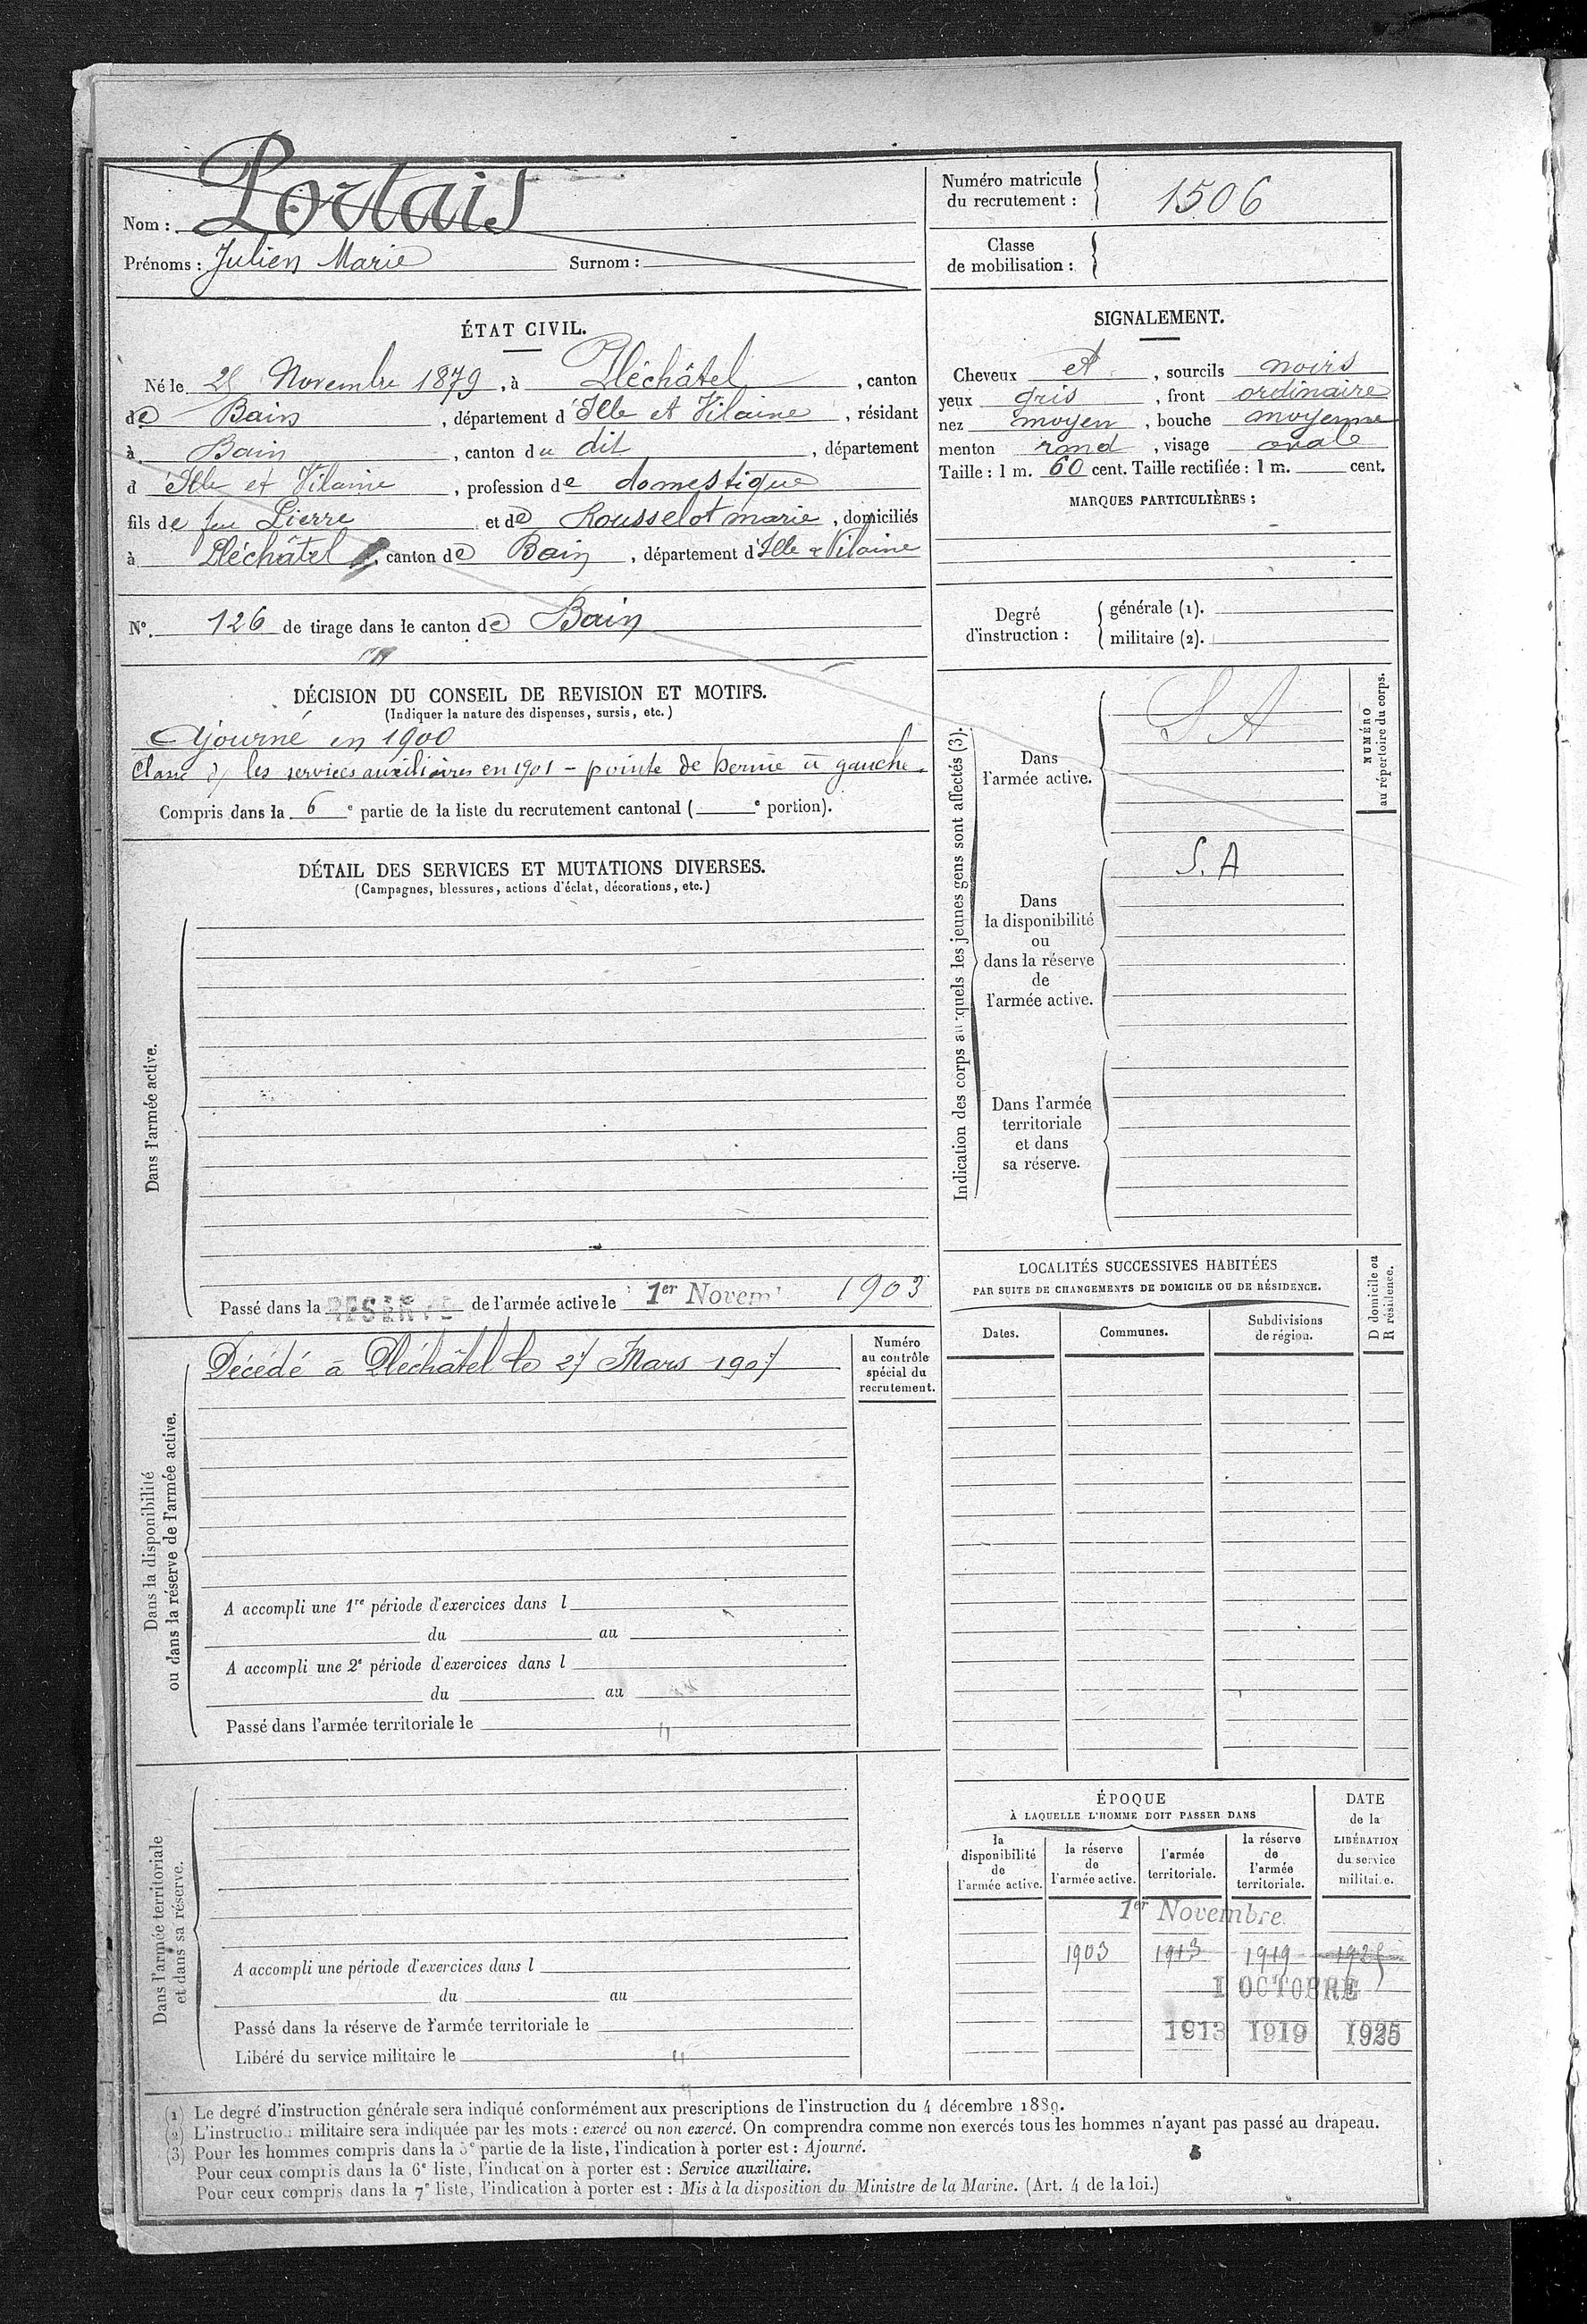 Nom : Portais
Prénoms : Julien Marie Surnom :
Numéro matricule
du recrutement : 1506
Classe
de mobilisation :
ÉTAT CIVIL.
Né le Novembre 1879, à Pléchâtel, canton
de Bain, département d'Ille et Vilaine, résidant
à Bain, canton du dit, département
d Ille et Vilaine, profession de domestique
fils de feu Pierre et de Rousselot marie, domiciliés
à Pléchâtel, canton de Bain, département d'Ille & Vilaine
N°. 126 de tirage dans le canton de Bain
SIGNALEMENT.
Cheveux et, sourcils noirs
yeux gris, front ordinaire
nez moyen, bouche moyenne
menton rond, visage ovale
Taille : 1 m. 60 cent. Taille rectifiée : 1 m. cent.
MARQUES PARTICULIÈRES :
Degré
d'instruction :
générale (1).
militaire (2).
DÉCISION DU CONSEIL DE REVISION ET MOTIFS.
(Indiquer la nature des dispenses, sursis, etc.)
Ajourné en 1900
Classé ds les services auxiliaires en 1901 - pointe de hernie à gauche.
Compris dans la 6e partie de la liste du recrutement cantonal ( e portion).
DÉTAIL DES SERVICES ET MUTATIONS DIVERSES.
(Campagnes, blessures, actions d'éclat, décorations, etc.)
Dans l'armée active.
Passé dans la RESERVE de l'armée active le 1er Novem 1903
Indication des corps auxquels les jeunes gens sont affectés (3).
NUMÉRO
au répertoire du corps.
Dans
l'armée active.
S A
Dans
la disponibilité
ou
dans la réserve
de
l'armée active.
S. A
Dans l'armée
territoriale
et dans
sa réserve.
LOCALITÉS SUCCESSIVES HABITÉES
PAR SUITE DE CHANGEMENTS DE DOMICILE OU DE RÉSIDENCE.
D domicile ou
R résidence.
Dates.
Communes.
Subdivisions
de région.
Numéro
au contrôle
spécial du
recrutement.
Dans la disponibilité
ou dans la réserve de l'armée active.
Décédé à Pléchâtel le 27 Mars 1907
A accompli une 1re période d'exercices dans l
du au
A accompli une 2e période d'exercices dans l
du au
Passé dans l'armée territoriale le "
Dans l'armée territoriale
et dans sa réserve.
A accompli une période d'exercices dans l
du au
Passé dans la réserve de l'armée territoriale le
Libéré du service militaire le "
ÉPOQUE
À LAQUELLE L'HOMME DOIT PASSER DANS
DATE
de la
LIBÉRATION
du service
militaire.
la
disponibilité
de
l'armée active.
la réserve
de
l'armée active.
l'armée
territoriale.
la réserve
de
l'armée
territoriale.
1er Novembre.
1903 1913 1919
1 OCTOBRE
1913 1919 1925
(1) Le degré d'instruction générale sera indiqué conformément aux prescriptions de l'instruction du 4 décembre 1889.
(2) L'instruction militaire sera indiquée par les mots : exercé ou non exercé. On comprendra comme non exercés tous les hommes n'ayant pas passé au drapeau.
(3) Pour les hommes compris dans la 5e partie de la liste, l'indication à porter est : Ajourné.
Pour ceux compris dans la 6e liste, l'indication à porter est : Service auxiliaire.
Pour ceux compris dans la 7e liste, l'indication à porter est : Mis à la disposition du Ministre de la Marine. (Art. 4 de la loi.)